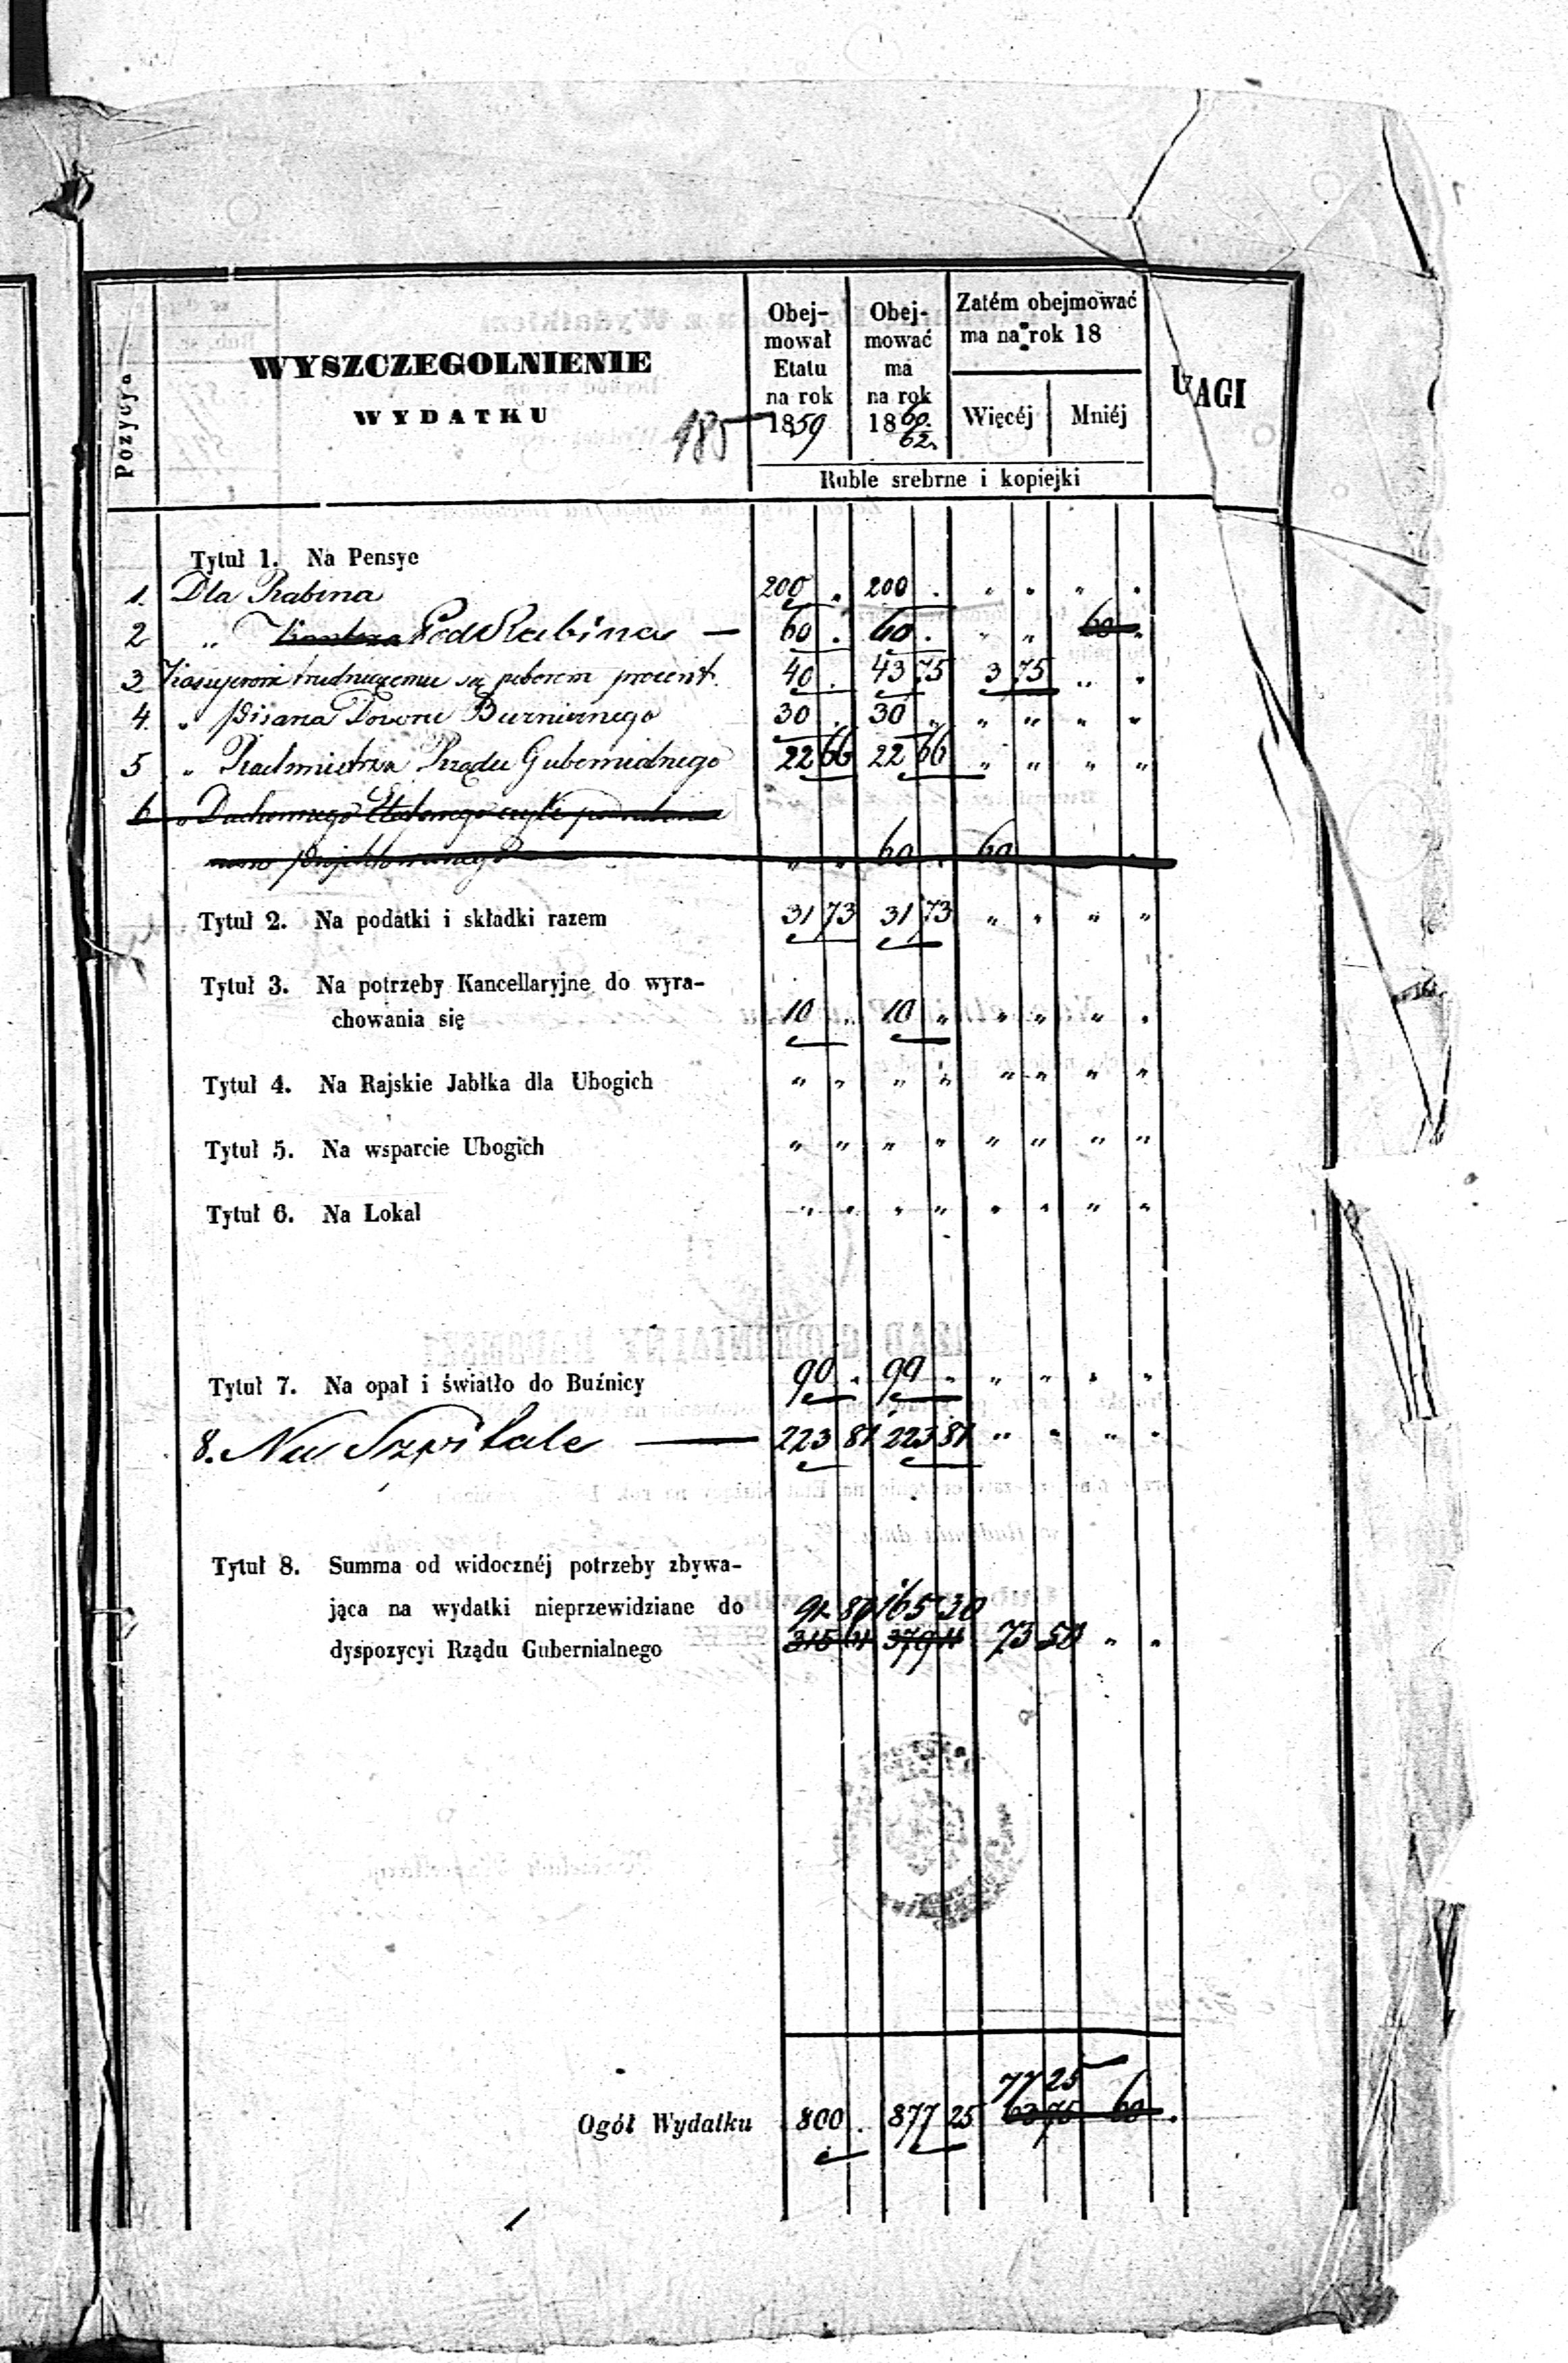 Pozycya
WYSZCZEGOLNIENIE
WYDATKU
185
Obej-
mował
Etatu
na rok
1859
Obej-
mować
ma
na rok
1860.
62.
Zatém obejmować
ma na rok 18
Więcéj Mniéj
UWAGI
Ruble srebrne i kopiejki
Tytuł 1. Na Pensye
1. Dla Rabina 200 . 200 . " " " "
2 " Kantora PodRabina — 60 . 60 . " " 60 "
3 Kassyerowi trudniącemu się poborem procent. 40 . 43 75 3 75 " "
4. " Pisarza Dozoru Bużnicznego 30 . 30 " " " " "
5 " Rachmistrza Rządu Gubernialnego 22 66 22 66 " " " "
6 " Duchownego Etatowego czyli podrabina
" " 60 . 60
Tytuł 2. Na podatki i składki razem 31 73 31 73 " " " "
Tytuł 3. Na potrzeby Kancellaryjne do wyra-
chowania się 10 . 10 " " " " "
Tytuł 4. Na Rajskie Jabłka dla Ubogich " " " " " " " "
Tytuł 5. Na wsparcie Ubogich " " " " " " " "
Tytuł 6. Na Lokal " " " " " " " "
Tytuł 7. Na opał i światło do Buźnicy 90 . 90 . " " " "
8. Na Szpitale — 223 81 223 81 " " " "
Tytuł 8. Summa od widocznéj potrzeby zbywa-
jąca na wydatki nieprzewidziane do 91 80 165 30
dyspozycyi Rządu Gubernialnego 315 61 379 11 73 50 " "
77 25
Ogół Wydatku 800 . 877 25 63 75 60 .